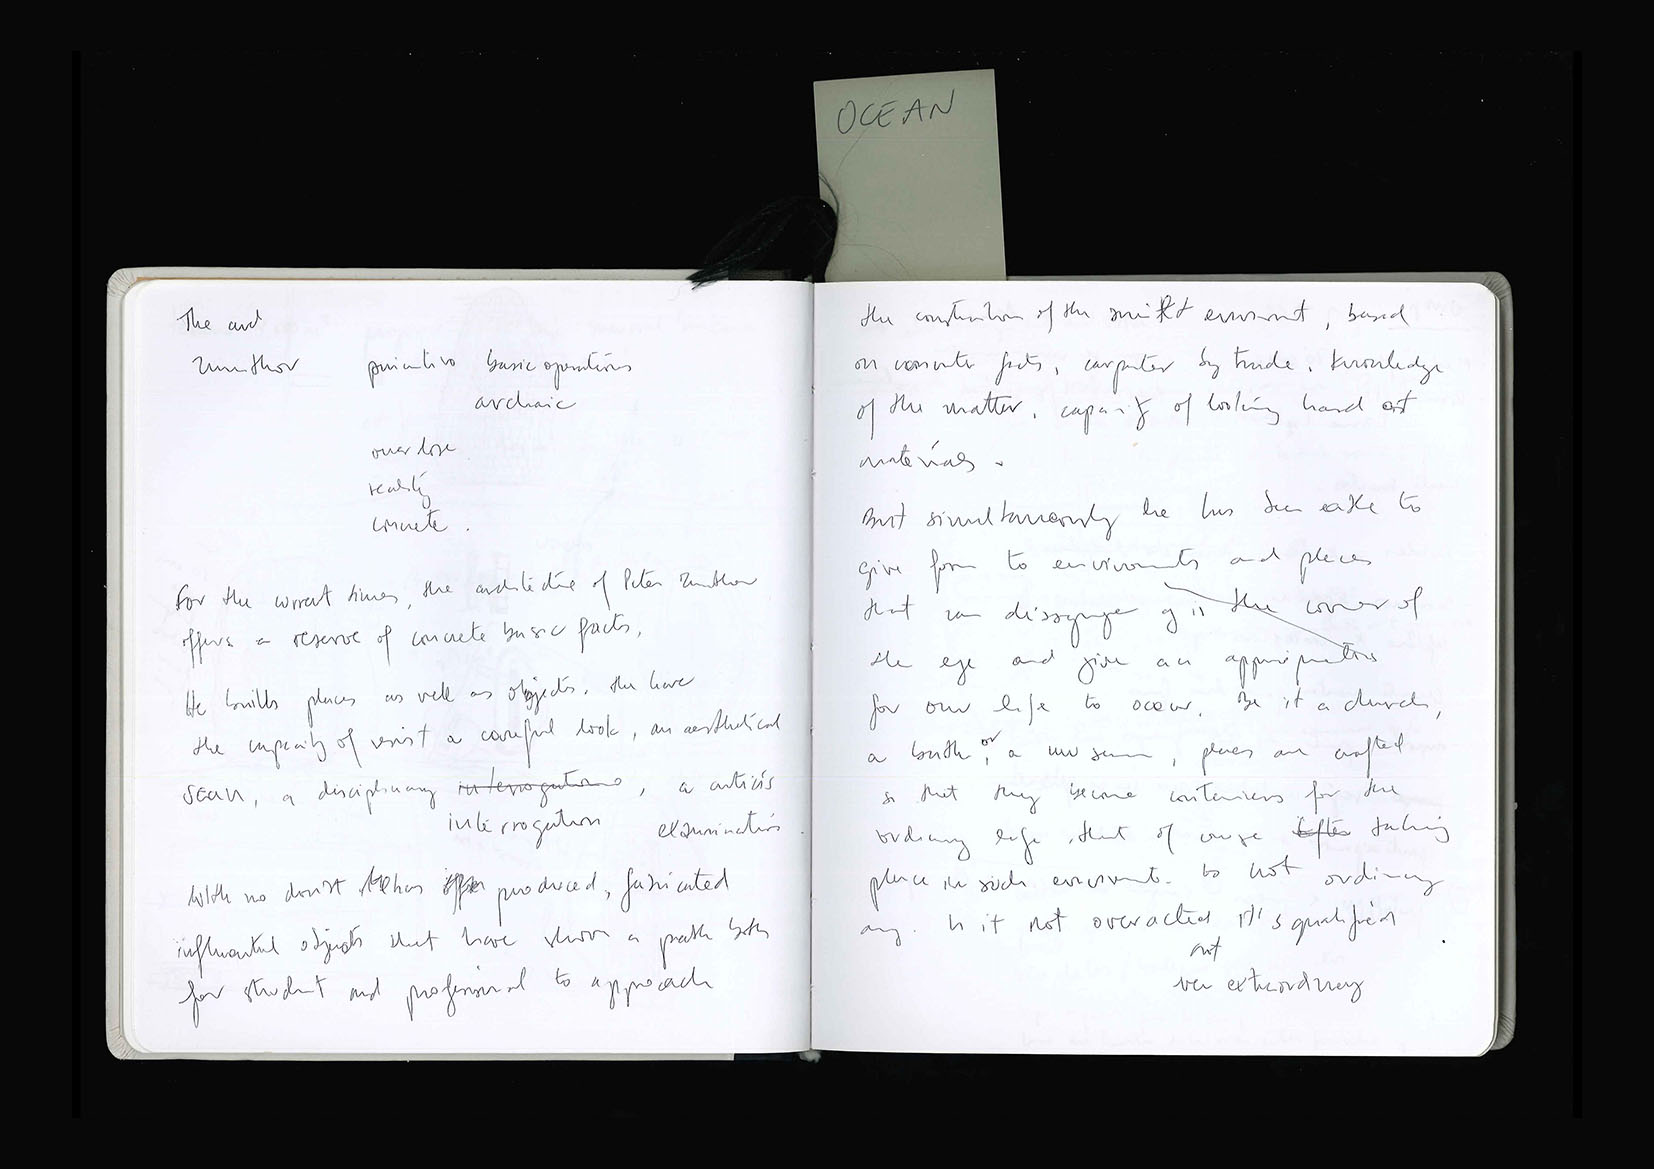 OCEAN
The and
Zumthor primitive basic operations
archaic
overdose
reality
concrete.
For the current times, the architecture of Peter Zumthor
offers a reserve of concrete basic facts.
He builds places as well as objects. the have
the capacity of resist a careful look, an aesthetical
scan, a disciplinary interrogation, a critics
interrogation examination
With no doubt has produced, fabricated
influential objects that have shown a path both
for student and professional to approach
the construction of the environment, based
on concrete facts, carpenter by trade. Knowledge
of the matter. capacity of looking hard at
materials.
But simultaneously he has been able to
give form to enviroments and places
that can the corner of
the eye and give an appropriate
for our life to occur. Be it a church,
a bath, or a museum, places are crafted
so that they become containers for the
ordinary life, that of course taking
place in such enviroments is not ordinary
any. Is it not overacted it's qualified
not
extraordinary